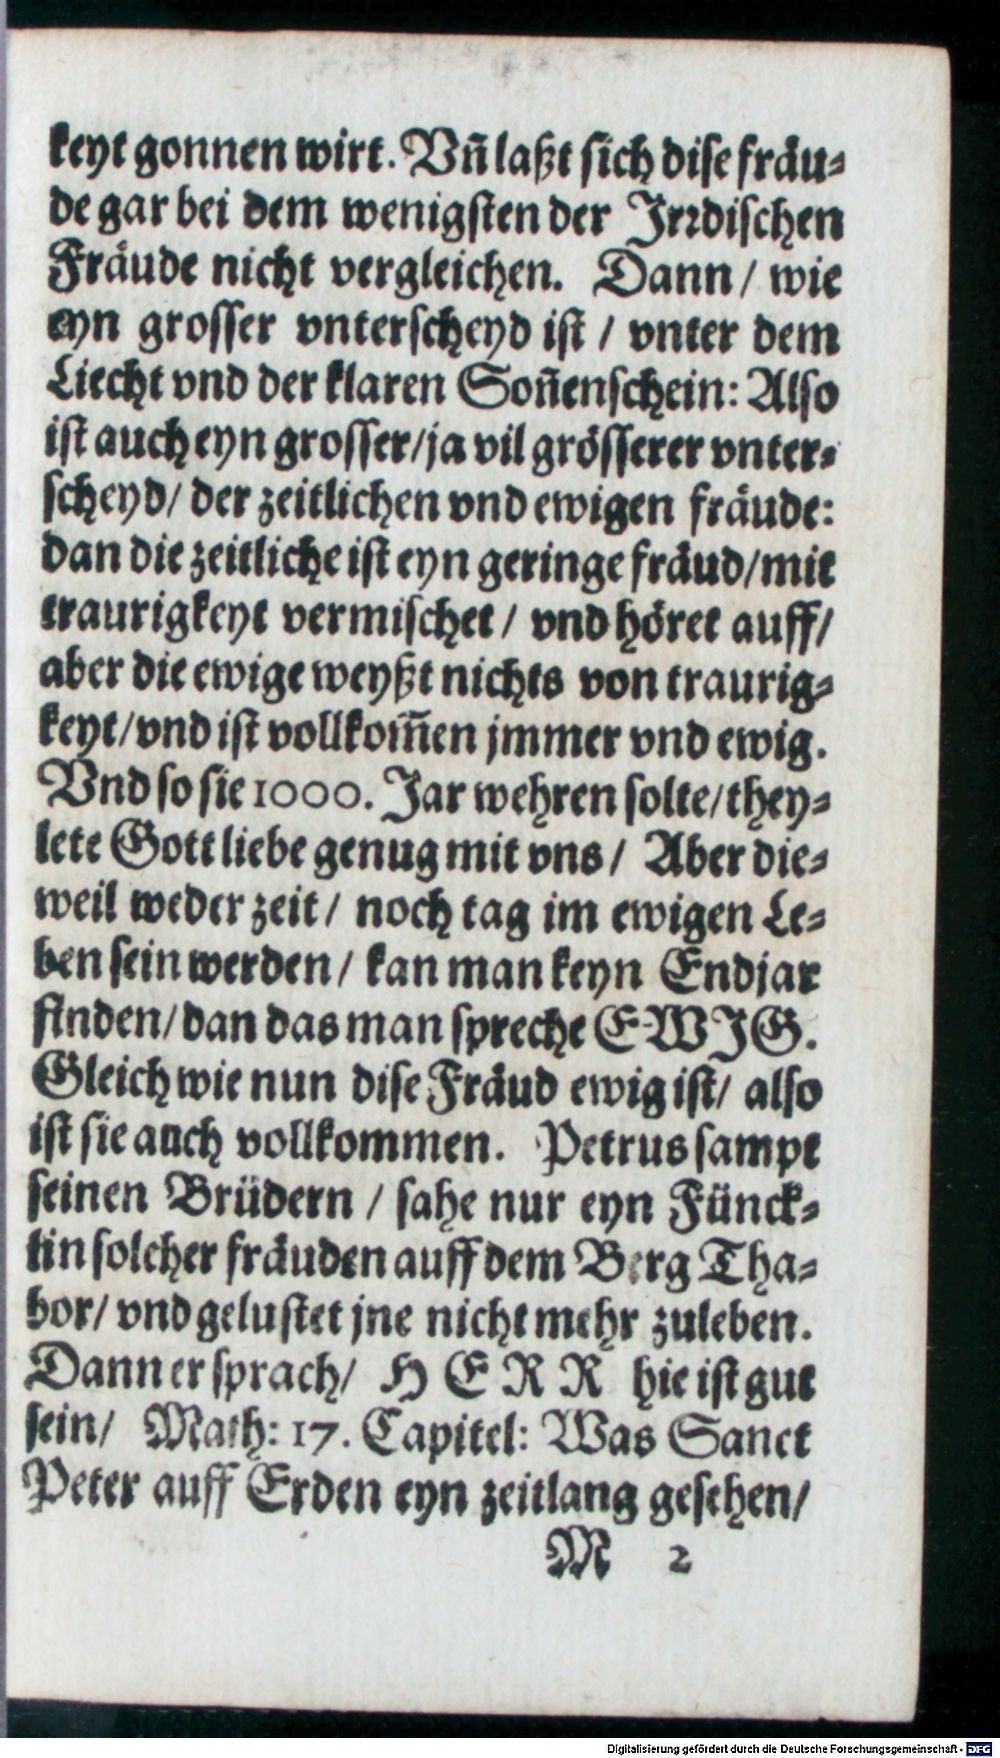 keyt gonnen wirt. Vñ laßt sich dise fräu-
de gar bei dem wenigsten der Irrdischen
Fräude nicht vergleichen. Dann / wie
eyn grosser vnterscheyd ist / vnter dem
Liecht vnd der klaren Soñenschein: Also
ist auch eyn grosser/ja vil grösserer vnter-
scheyd/ der zeitlichen vnd ewigen fräude:
dan die zeitliche ist eyn geringe fräud/mit
traurigkeyt vermischet / vnd höret auff/
aber die ewige weyßt nichts von traurig-
keyt/vnd ist vollkom̃en jmmer vnd ewig.
Vnd so sie 1000. Jar wehren solte/they-
lete Gott liebe genug mit vns / Aber die-
weil weder zeit / noch tag im ewigen Le-
ben sein werden / kan man keyn Endjar
finden/dan das man spreche EWIG.
Gleich wie nun dise Fräud ewig ist/ also
ist sie auch vollkommen. Petrus sampt
seinen Brüdern / sahe nur eyn Fünck-
lin solcher fräuden auff dem Berg Tha-
bor/ vnd gelustet jne nicht mehr zuleben.
Dann er sprach/ HERR hie ist gut
sein/ Math: 17. Capitel: Was Sanct
Peter auff Erden eyn zeitlang gesehen/
M 2
Digitalisierung gefördert durch die Deutsche Forschungsgemeinschaft - DFG